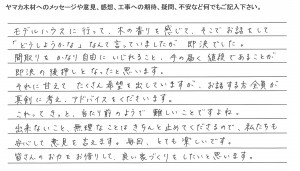 ヤマカ木材へのメッセージや意見、感想、工事への期待、疑問、不安など何でもご記入下さい。
モデルハウスに行って、木の香りを感じて、そこでお話をして
「どうしようかな」なんて言っていましたが 即決でした。
間取りをかなり自由にいじれること、手の届く値段であることが
即決の後押しとなったと思います。
それに甘えて たくさん希望を出していますが、お話する方全員が
真剣に考え、アドバイスをくださいます。
これってきっと、当たり前のようで 難しいことですよね。
出来ないこと、無理なことはきちんと止めてくださるので、私たちも
安心して 意見を言えます。毎回、とても楽しいです。
皆さんのお力をお借りして、良い家づくりをしたいと思います。